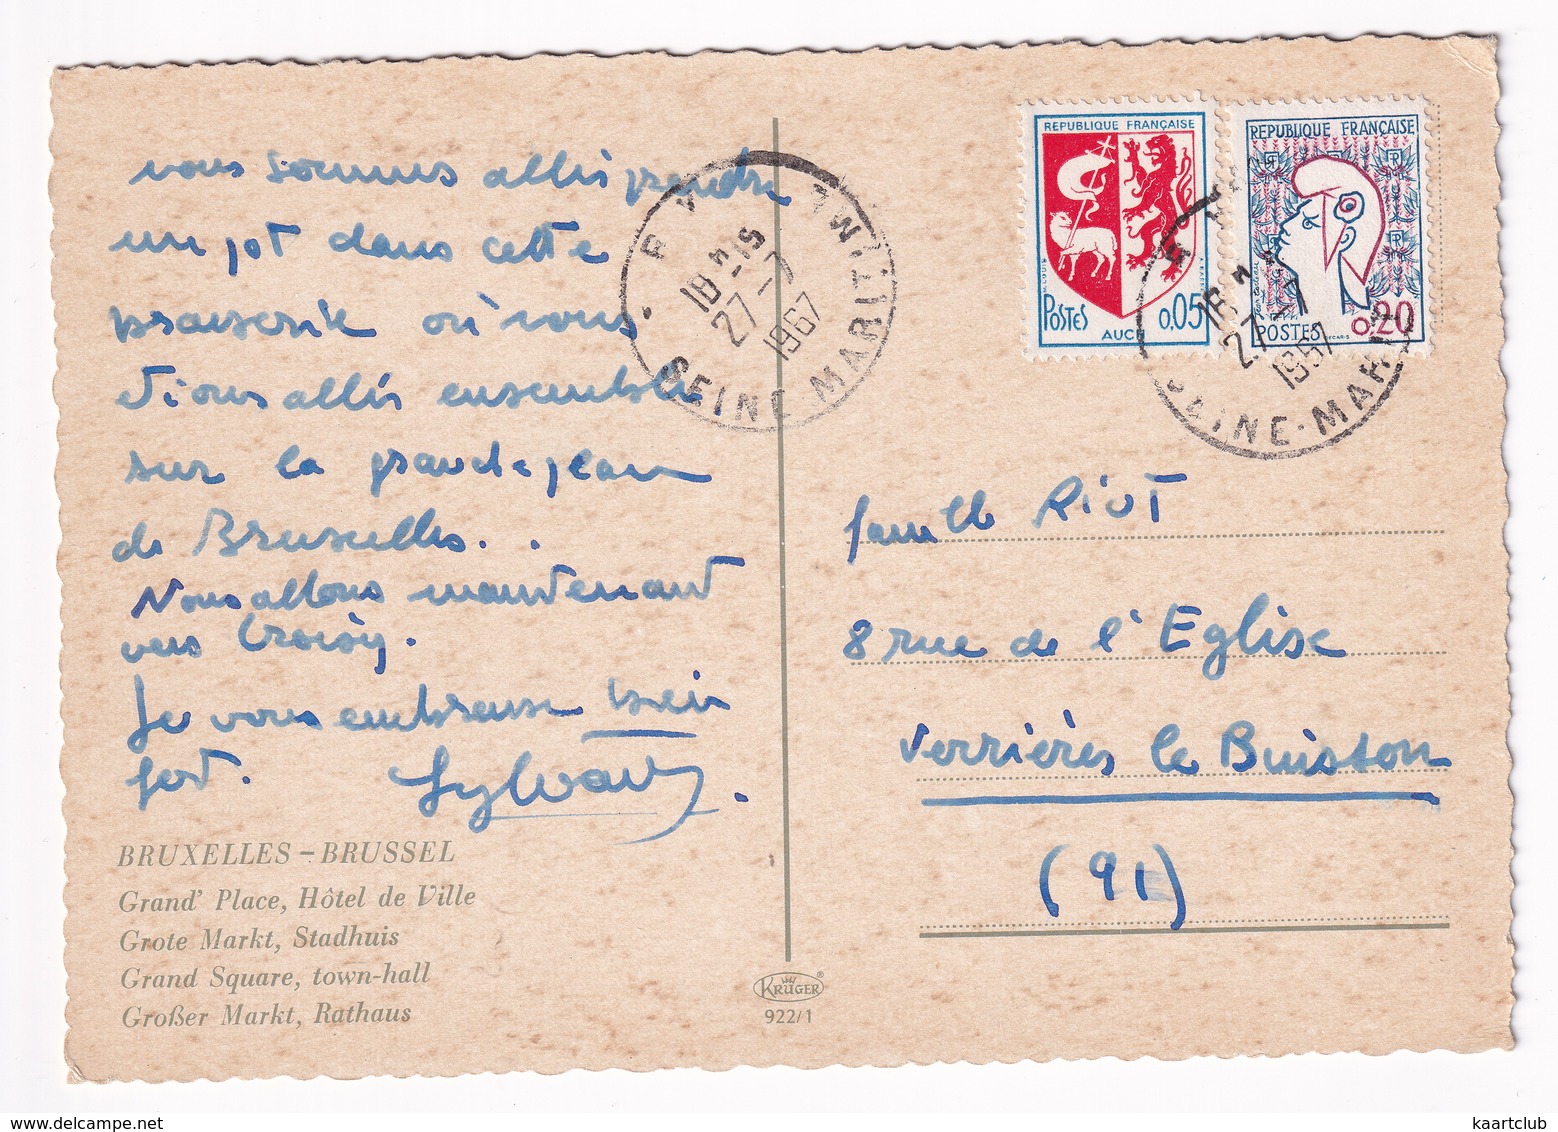 vous sommes allés prendre
un pot dans cette
brasserie où nous
étions allés ensemble
sur la grande place
de Bruxelles. .
Nous allons maintenant
vers Croisy.
Je vous embrasse bien
fort. Sylvain.
BRUXELLES – BRUSSEL
Grand' Place, Hôtel de Ville
Grote Markt, Stadhuis
Grand Square, town-hall
Großer Markt, Rathaus
KRÜGER
922/1
18 H-15
27-7
1967
SEINE-MARITIME
REPUBLIQUE FRANÇAISE
POSTES 0,05
AUCH
REPUBLIQUE FRANÇAISE
POSTES 0,20
18 H
27-7
1967
SEINE-MAR
famille Riot
8 rue de l'Eglise
Verrières le Buisson
(91)
kaartclub